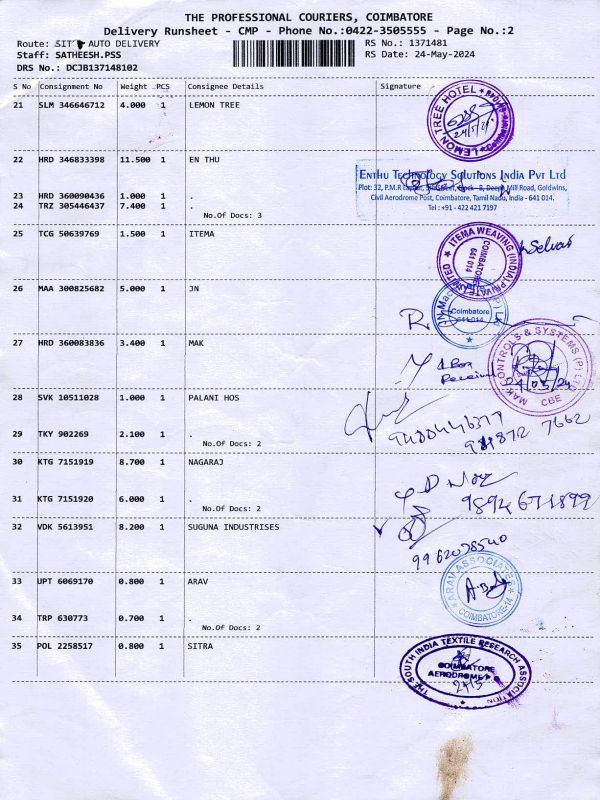 THE PROFESSIONAL COURIERS, COIMBATORE
Delivery Runsheet - CMP - Phone No.:0422-3505555 - Page No.:2
Route: SIT AUTO DELIVERY
RS No.: 1371481
Staff: SATHEESH.PSS
RS Date: 24-May-2024
DRS No.: DCJB137148102
S No Consignment No Weight PCS Consignee Details Signature
21 SLM 346646712 4.000 1 LEMON TREE
LEMON TREE HOTEL
22 HRD 346833398 11.500 1 EN THU
Enthu Technology Solutions India Pvt Ltd
Plot: 32, P.M.R Mill Road, Goldwins,
Civil Aerodrome Post, Coimbatore, Tamil Nadu, India - 641 014.
Tel : +91 - 422 421 7197
23 HRD 360090436 1.000 1 .
24 TRZ 305446437 7.400 1 .
No.Of Docs: 3
25 TCG 50639769 1.500 1 ITEMA
ITEMA WEAVING (INDIA) PRIVATE LIMITED
COIMBATORE
641 014
Selvas
26 MAA 300825682 5.000 1 JN
Coimbatore
641 014
27 HRD 360083836 3.400 1 MAK
MAK CONTROLS & SYSTEMS (P) LTD
CBE
1 Box
Received
24/05/24
28 SVK 10511028 1.000 1 PALANI HOS
29 TKY 902269 2.100 1 .
No.Of Docs: 2
30 KTG 7151919 8.700 1 NAGARAJ
9894671899
31 KTG 7151920 6.000 1 .
No.Of Docs: 2
32 VDK 5613951 8.200 1 SUGUNA INDUSTRISES
33 UPT 6069170 0.800 1 ARAV
ARAV ASSOCIATES
COIMBATORE-14
34 TRP 630773 0.700 1 .
No.Of Docs: 2
35 POL 2258517 0.800 1 SITRA
THE SOUTH INDIA TEXTILE RESEARCH ASSOCIATION
COIMBATORE
AERODROME P.O
24/5